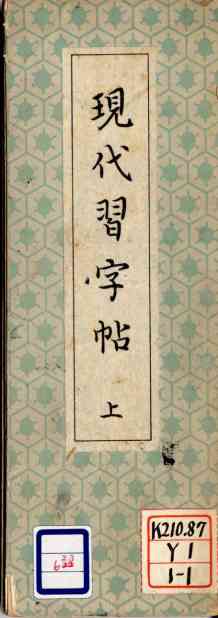 現代習字帖
上
K210.87
Y1
1-1